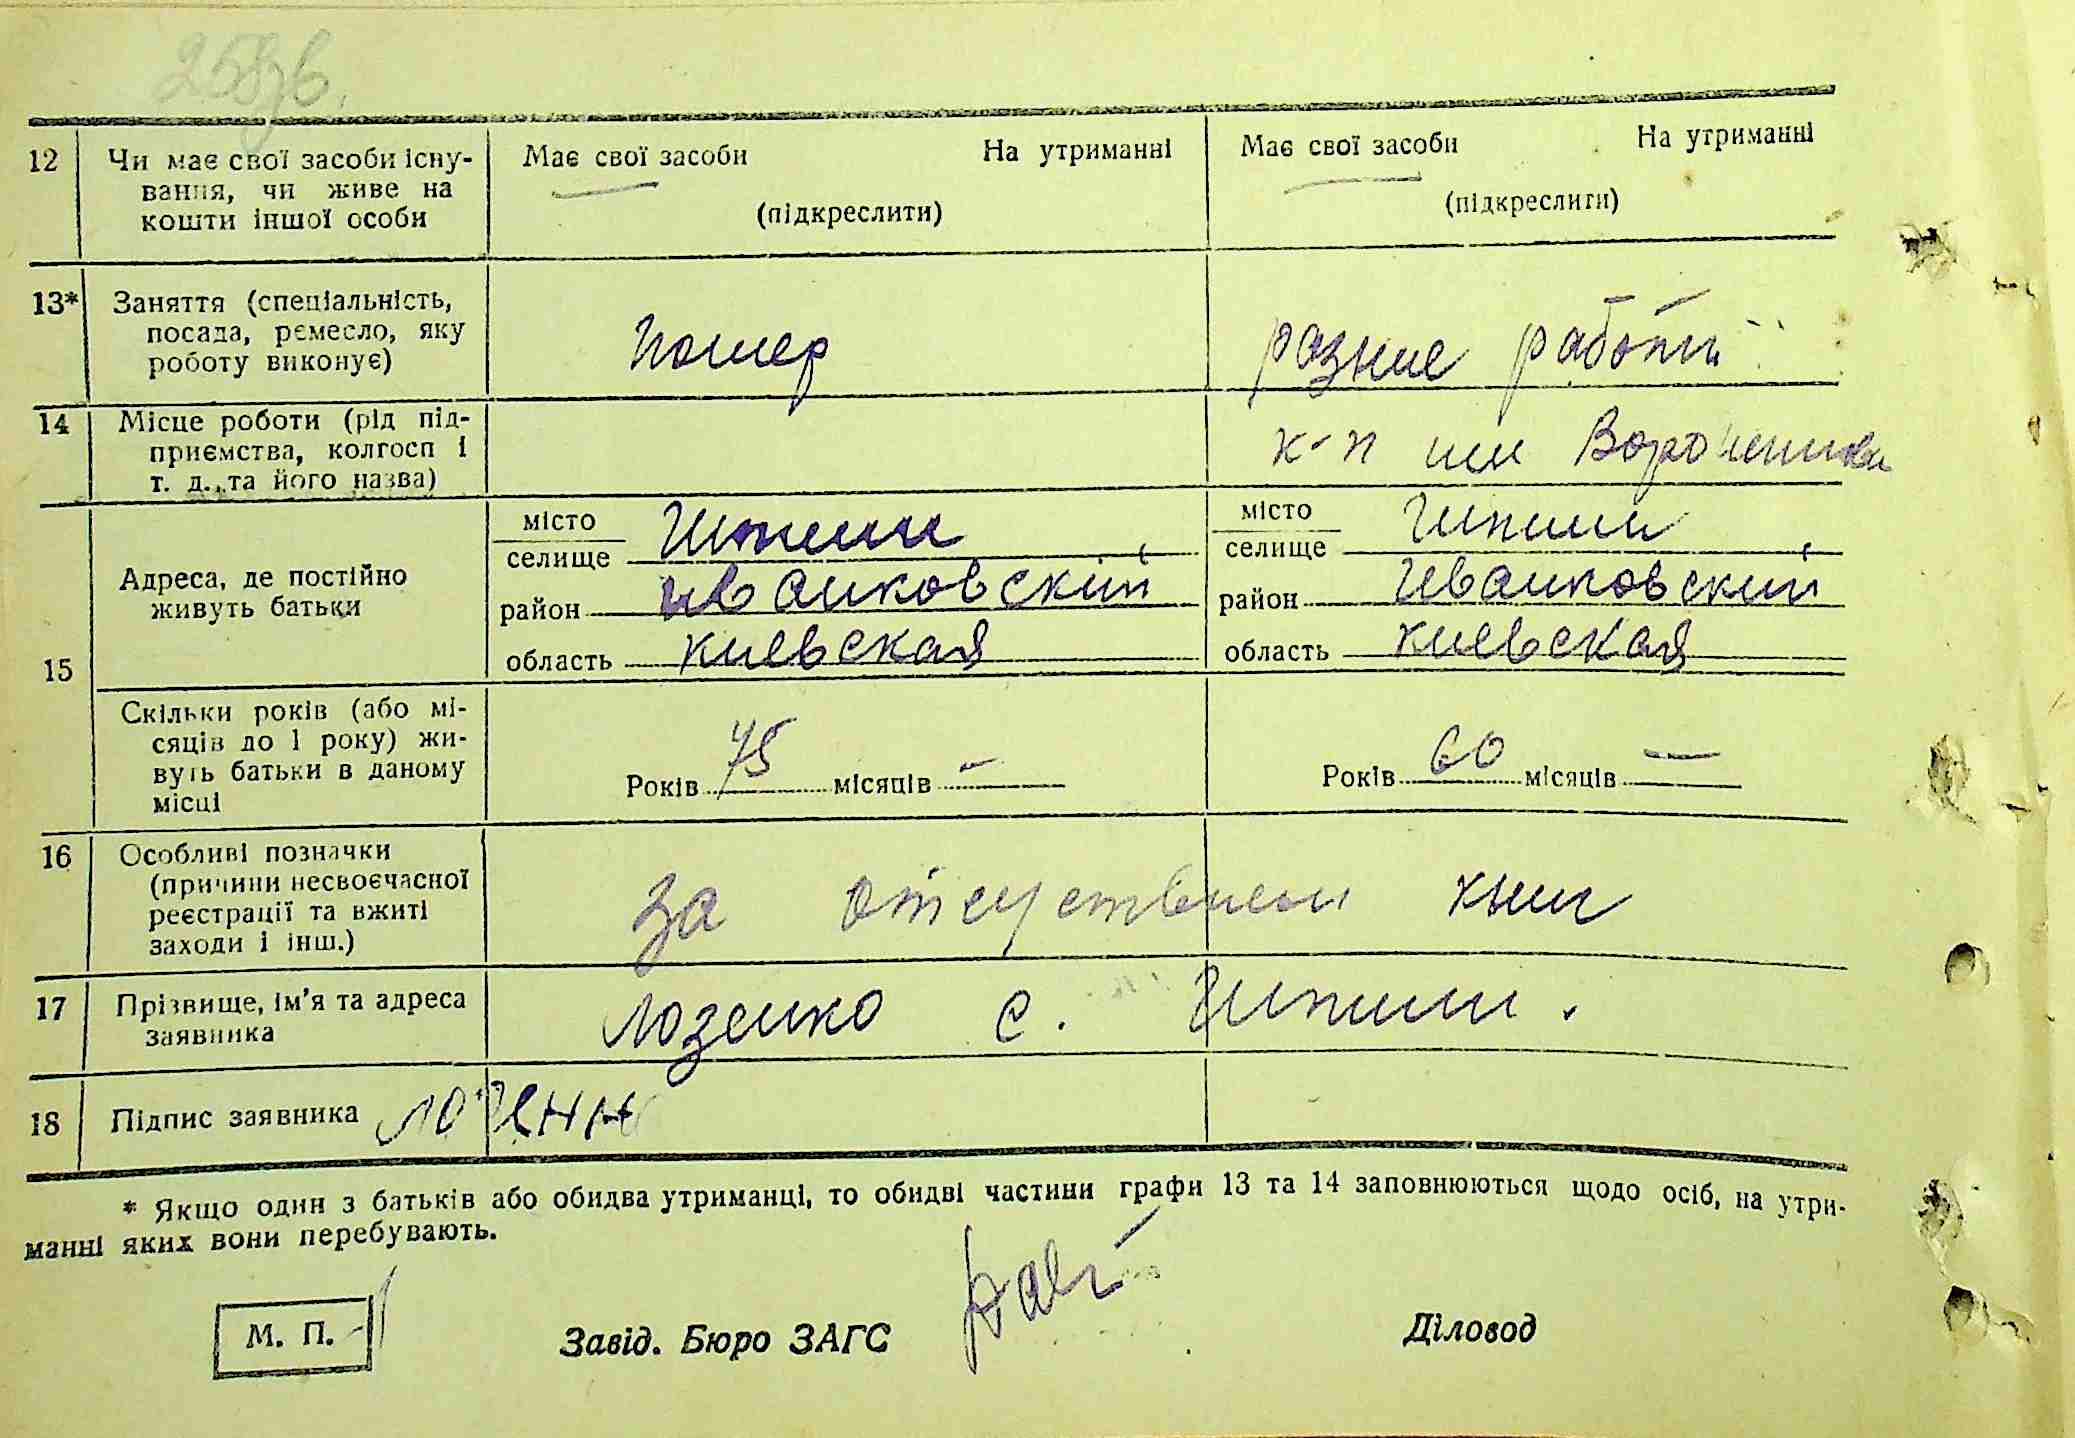 258зв.
12 Чи має свої засоби існу-
вання, чи живе на
кошти іншої особи
Має свої засоби На утриманні
(підкреслити)
Має свої засоби На утриманні
(підкреслити)
13* Заняття (спеціальність,
посада, ремесло, яку
роботу виконує)
помер
разние работи
14 Місце роботи (рід під-
приємства, колгосп і
т. д., та його назва)
к-п им
15 Адреса, де постійно
живуть батьки
місто
селище Шпили
район иванковский
область киевская
місто
селище Шпили
район Иванковский
область киевская
Скільки років (або мі-
сяців до 1 року) жи-
вуть батьки в даному
місці
Років 75 місяців —
Років 60 місяців —
16 Особливі позначки
(причини несвоєчасної
реєстрації та вжиті
заходи і інш.)
за отсуствием книг
17 Прізвище, ім'я та адреса
заявника
Лозенко с. Шпили.
18 Підпис заявника
* Якщо один з батьків або обидва утриманці, то обидві частини графи 13 та 14 заповнюються щодо осіб, на утри-
манні яких вони перебувають.
М. П.
Завід. Бюро ЗАГС
Діловод